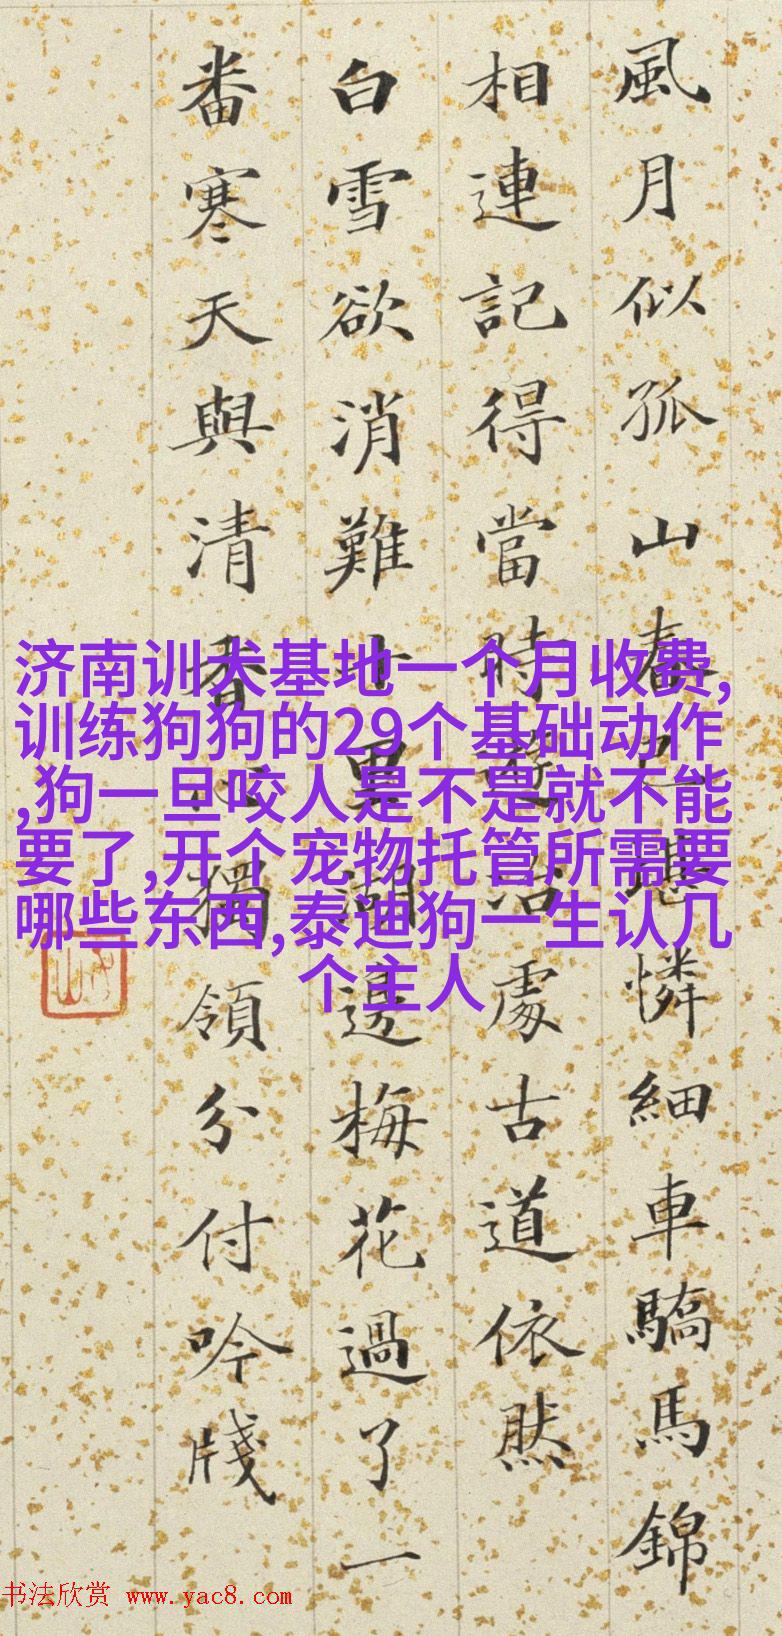 風月似孤山春堪憐細車驕馬錦
相連記得當時遊冶處古道依然
白雪欲消難十里湖邊梅花過了一
番寒天與清香心獨領分付吟牋
济南训犬基地一个月收费,
训练狗狗的29个基础动作
,狗一旦咬人是不是就不能
要了,开个宠物托管所需要
哪些东西,泰迪狗一生认几
个主人
书法欣赏 www.yac8.com